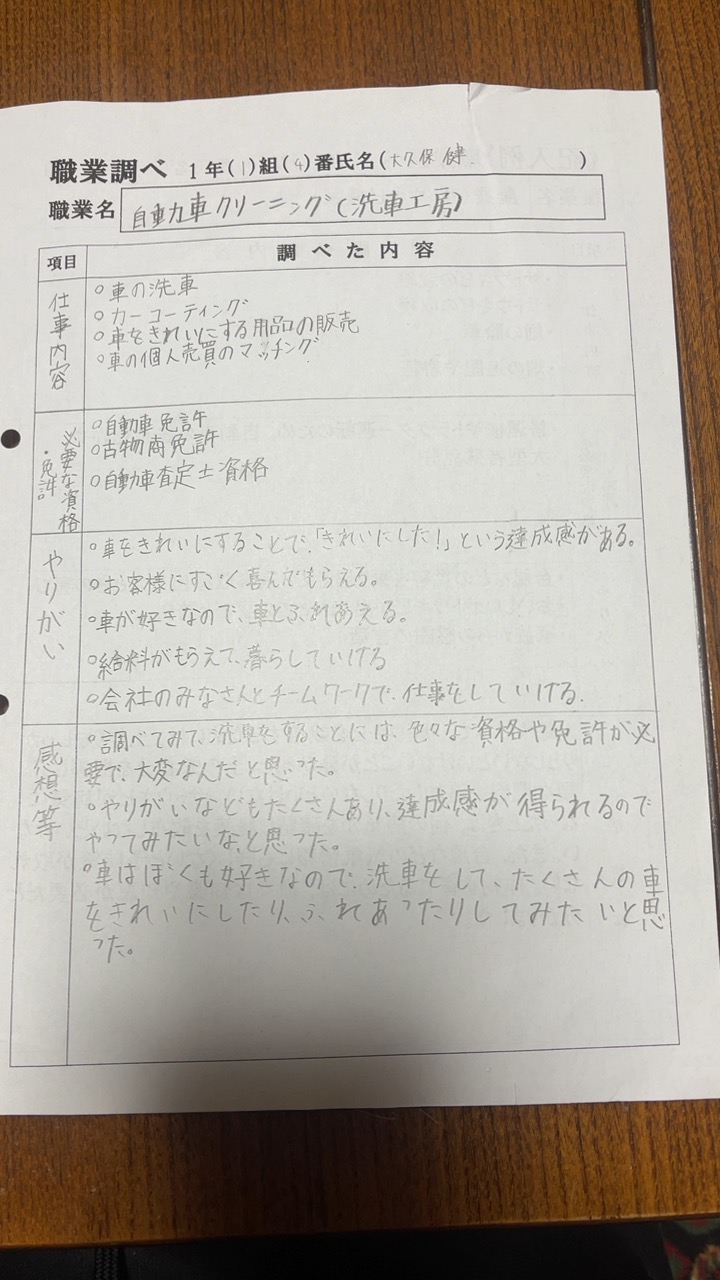 職業調べ 1年(1)組(4)番氏名(大久保 健 )
職業名 自動力車クリーニング(洗車工房)
項目 調べた内容
仕事内容
○車の洗車
○カーコーティング
○車をきれいにする用品の販売
○車の個人売買のマッチング
必要な資格・免許
○自動車免許
○古物商免許
○自動車査定士資格
やりがい
○車をきれいにすることで、「きれいにした!」という達成感がある。
○お客様にすごく喜んでもらえる。
○車が好きなので、車とふれあえる。
○給料がもらえて、暮らしていける
○会社のみなさんとチームワークで、仕事をしていける.
感想等
○調べてみて、洗車をすることには、色々な資格や免許が必
要で、大変なんだと思った。
○やりがいなどもたくさんあり、達成感が得られるので
やってみたいな、と思った。
○車はぼくも好きなので、洗車をして、たくさんの車
をきれいにしたり、ふれあったりしてみたいと思
った。